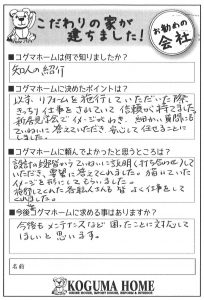 こだわりの家が
建ちました！
お勧めの
会社
■コグマホームは何で知りましたか？
知人の紹介
■コグマホームに決めたポイントは？
以前、リフォームを施行していただいた際
きっちり仕事をされていて信頼が持てました
新居見学会でイメージがわき、細かい質問にも
ていねいに答えていただき、安心して任せることに
しました。
■コグマホームに頼んでよかったと思うところは？
設計の段階からていねいに説明（打ち合わせ）して
いただき、要望に答えてくれました。描いていた
イメージを形にしてもらいました。
施行してくれた
皆 よく仕事をして
くれました。
■今後コグマホームに求める事はありますか？
今後もメンテナンスなど 困ったことに対応して
ほしいと思います。
名前
KOGUMA HOME